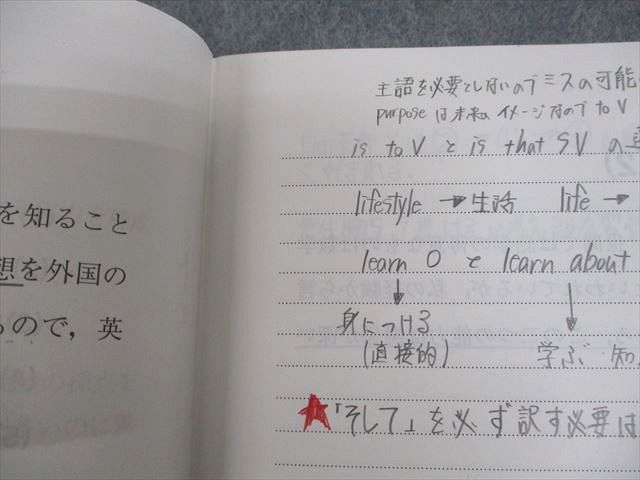 を知ること
想を外国の
ので，英
主語を必要としないのでミスの可能
purpose は未来のイメージなので to V
is to V と is that SV の
lifestyle → 生活 life →
learn O と learn about
身につける
(直接的)
学ぶ・知
★「そして」を必ず訳す必要は